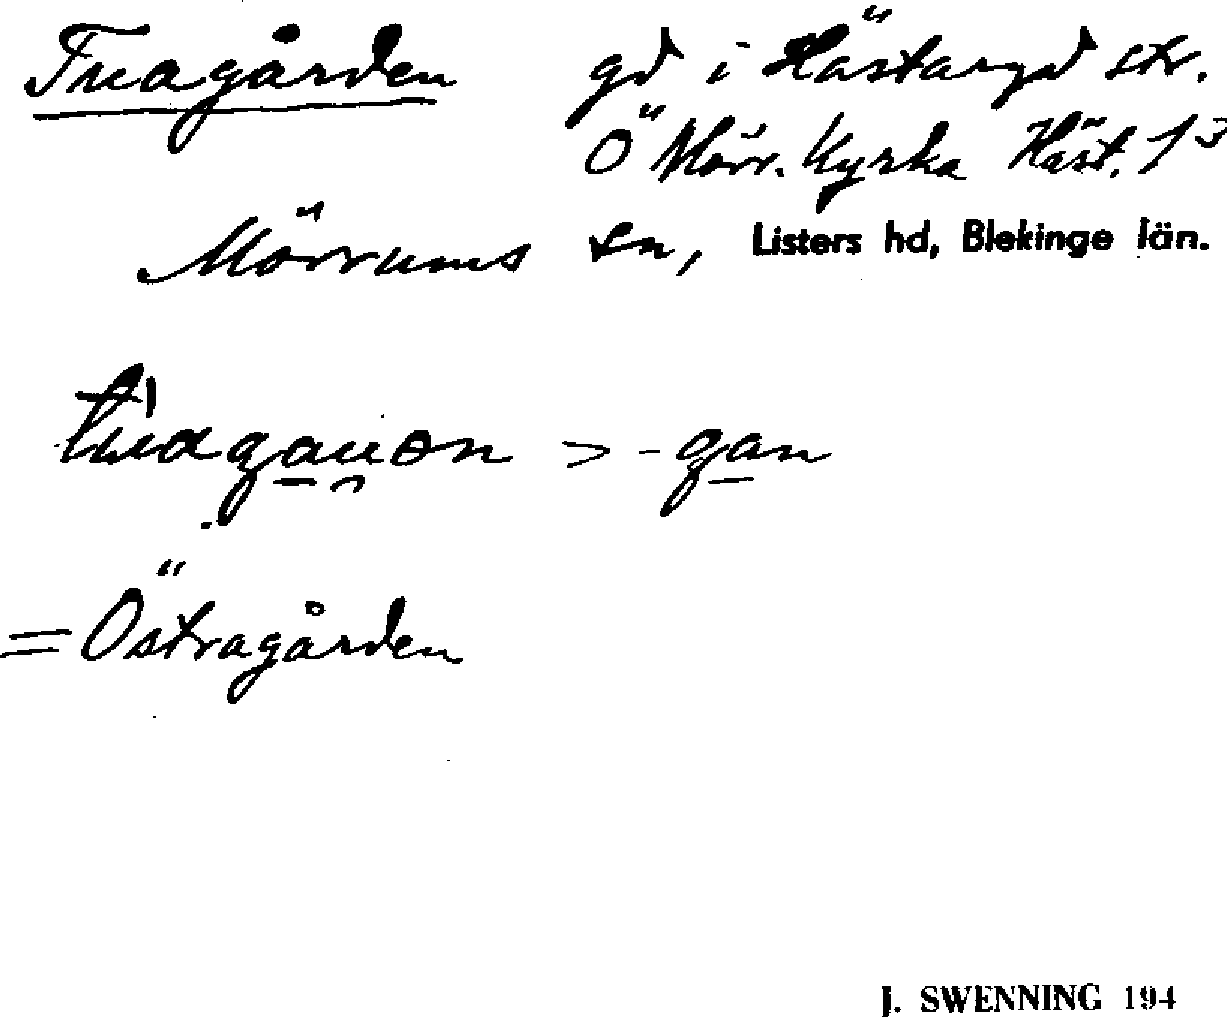 Truagården gd i Hästaryd str.
Ö Mörr. Kyrka Häst. 1³
Mörrums sn, Listers hd, Blekinge län.
> -gan
= Östragården
J. SWENNING 194